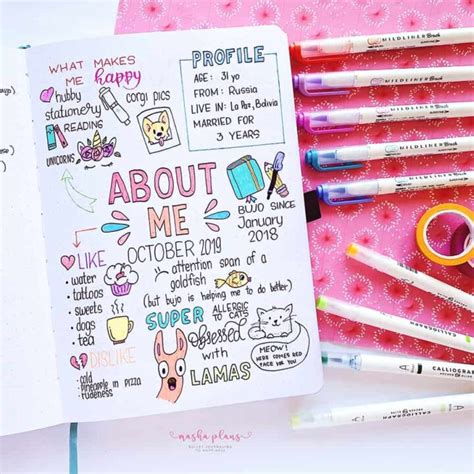 WHAT MAKES
ME happy
hubby
stationery
corgi pics
READING
UNICORNS
PROFILE
AGE: 31 yo
FROM: Russia
LIVE IN: La Paz, Bolivia
MARRIED FOR
3 YEARS
ABOUT
ME
OCTOBER 2019
BUJO SINCE
January
2018
LIKE
• water
• tattoos
• sweets
• dogs
• tea
attention span of a
goldfish
(but bujo is helping me to do better)
DISLIKE
• cold
• Pineapple in pizza
• rudeness
SUPER ALLERGIC
TO CATS
obsessed
with
LAMAS
MEOW!
HERE COMES RED
FACE FOR YOU
masha plans
BULLET JOURNALING
TO HAPPINESS
MILDLINER Brush
MILDLINER Brush
MILDLINER Brush
MILDLINER Brush
MILDLINER Brush
CALLIGRAPH
CALLIGRAPH
CALLIGRAPH